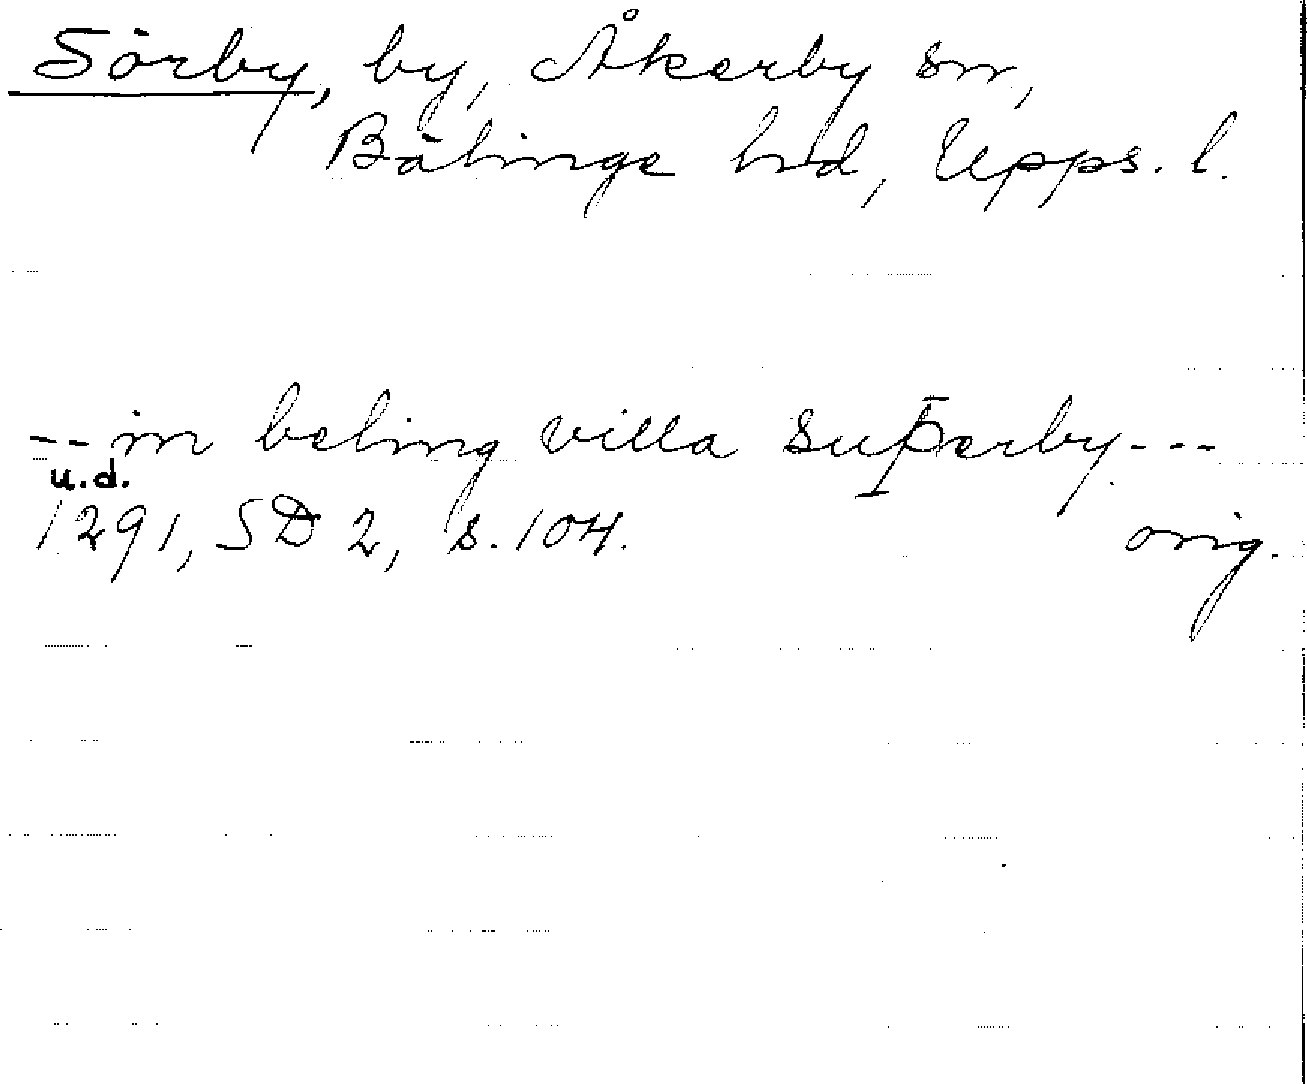 Sörby, by, Åkerby sn,
Bälinge hd, Upps. l.
-- in beling villa suþerby ---
u.d.
1291, SD 2, s. 104. orig.